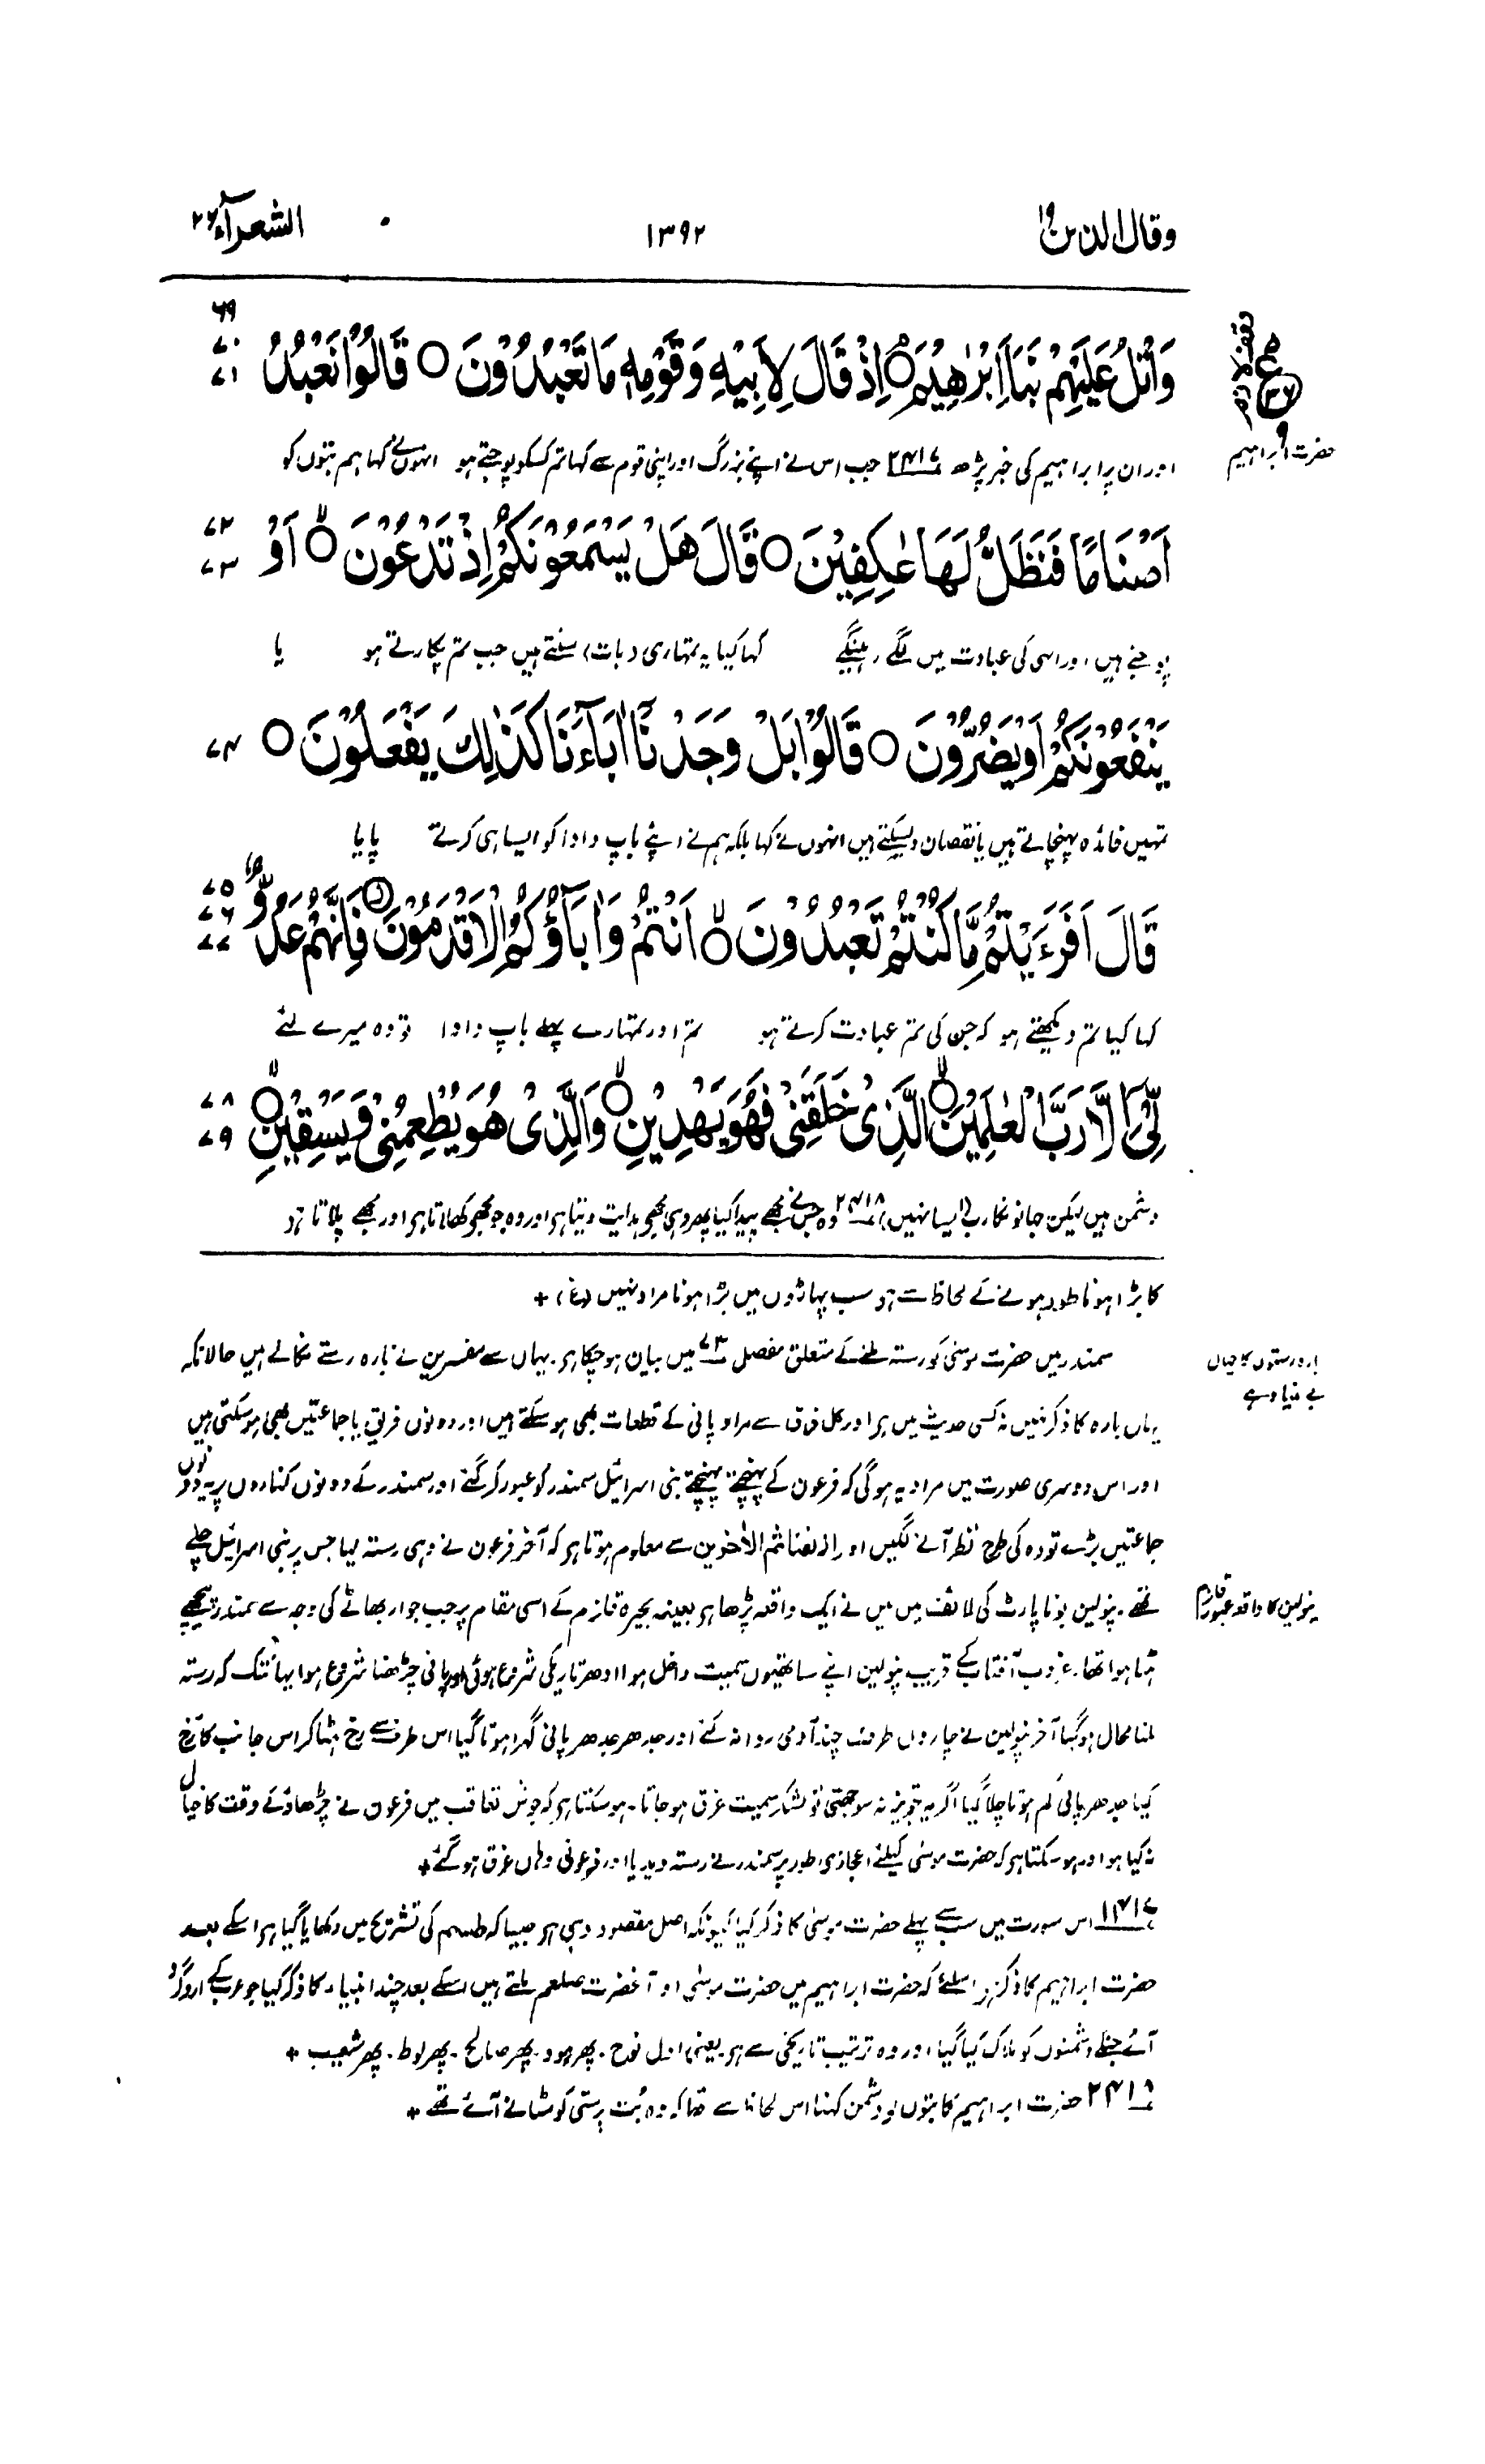 وقال الذین ۱۹
۱۳۹۲
الشعرآء ۲۶
وَاتْلُ عَلَیْهِمْ نَبَاَ اِبْرٰهِیْمَ ○ اِذْ قَالَ لِاَبِیْهِ وَقَوْمِهٖ مَا تَعْبُدُوْنَ ○ قَالُوْا نَعْبُدُ
۶۹
۷۰
۷۱
حضرت ابراہیم
اور ان پر ابراہیم کی خبر پڑھ ۲۴۱۷ جب اس نے اپنے بزرگ اور اپنی قوم سے کہا تم کسکو پوجتے ہو انہوں نے کہا ہم بتوں کو
اَصْنَامًا فَنَظَلُّ لَهَا عٰكِفِیْنَ ○ قَالَ هَلْ یَسْمَعُوْنَكُمْ اِذْ تَدْعُوْنَ ○ اَوْ
۷۲
۷۳
پوجتے ہیں اور اسی کی عبادت میں لگے رہینگے کہا کیا یہ تمہاری (بات) سنتے ہیں جب تم پکارتے ہو یا
یَنْفَعُوْنَكُمْ اَوْ یَضُرُّوْنَ ○ قَالُوْا بَلْ وَجَدْنَاۤ اٰبَآءَنَا كَذٰلِكَ یَفْعَلُوْنَ ○
۷۴
تمہیں فائدہ پہنچاتے ہیں یا نقصان دیسکتے ہیں انہوں نے کہا بلکہ ہم نے اپنے باپ دادا کو ایسا ہی کرتے پایا
قَالَ اَفَرَءَیْتُمْ مَّا كُنْتُمْ تَعْبُدُوْنَ ○ اَنْتُمْ وَاٰبَآؤُكُمُ الْاَقْدَمُوْنَ ○ فَاِنَّهُمْ عَدُوٌّ
۷۵
۷۶
۷۷
کہا کیا تم دیکھتے ہو کہ جن کی تم عبادت کرتے ہو تم اور تمہارے پہلے باپ دادا تو وہ میرے لئے
لِّیْۤ اِلَّا رَبَّ الْعٰلَمِیْنَ ○ الَّذِیْ خَلَقَنِیْ فَهُوَ یَهْدِیْنِ ○ وَالَّذِیْ هُوَ یُطْعِمُنِیْ وَیَسْقِیْنِ ○
۷۸
۷۹
دشمن ہیں لیکن جہانو نکا رب (ایسا نہیں) ۲۴۱۸ وہ جس نے مجھے پیدا کیا پھر وہی مجھے ہدایت دیتا ہر اور وہ جو مجھے کھلاتا ہر اور مجھے پلاتا ہر
کا بڑا ہونا طود ہونے کے لحاظ سے ہر سب پہاڑوں میں بڑا ہونا مراد نہیں (غ) +
سمندر میں حضرت موسٰی کو رستہ ملنے کے متعلق مفصل ۷۳ میں بیان ہو چکا ہر۔ یہاں سے مفسرین نے بارہ رستے نکالے ہیں حالانکہ
بارہ رستوں کا خیال
بے بنیاد ہے
یہاں بارہ کا ذکر نہیں نہ کسی حدیث میں ہر اور کل فرق سے مراد پانی کے قطعات بھی ہو سکتے ہیں اور دونوں فریق یا جماعتیں بھی ہو سکتی ہیں
اور اس دوسری صورت میں مراد یہ ہوگی کہ فرعون کے پہنچتے پہنچتے بنی اسرائیل سمندر کو عبور کر گئے اور سمندر کے دونوں کناروں پر یہ دونوں
جماعتیں بڑے تودہ کی طرح نظر آنے لگیں اور ازلفنا ثم الاٰخرین سے معلوم ہوتا ہر کہ آخر فرعون نے وہی رستہ لیا جس پر بنی اسرائیل چلے
تھے۔ نپولین بونا پارٹ کی لائف میں میں نے ایک واقعہ پڑھا ہر بعینہٖ بحیرہ قلزم کے اسی مقام پر جب جوار بھاٹے کی وجہ سے سمندر پیچھے
نپولین کا واقعہ عبور قلزم
ہٹا ہوا تھا۔ غروب آفتاب کے قریب نپولین اپنے ساتھیوں سمیت داخل ہوا ادھر تاریکی شروع ہوئی اور پانی چڑھنا شروع ہوا یہانتک کہ رستہ
ملنا محال ہو گیا آخر نپولین نے چاروں طرف چند آدمی روانہ کئے اور جدھر جدھر پانی گہرا ہوتا گیا اس طرف سے رخ ہٹا کر اس جانب کا رخ
کیا جدھر پانی کم ہوتا چلا گیا اگر یہ تجویز نہ سوجھتی تو لشکر سمیت غرق ہو جاتا۔ ہو سکتا ہر کہ جوش تعاقب میں فرعون نے چڑھاؤ کے وقت کا خیال
نہ کیا ہو اور ہو سکتا ہر کہ حضرت موسٰی کیلئے اعجازی طور پر سمندر نے رستہ دیدیا اور فرعونی وہاں غرق ہو گئے +
۲۴۱۷ اس سورت میں سب سے پہلے حضرت موسٰی کا ذکر کیا کیونکہ اصل مقصود وہی ہر جیسا کہ طسم کی تشریح میں دکھایا گیا ہر اسکے بعد
حضرت ابراہیم کا ذکر ہر اسلئے کہ حضرت ابراہیم میں حضرت موسٰی اور آنحضرت صلعم ملتے ہیں اسکے بعد چند انبیاء کا ذکر کیا جو عرب کے اردگرد
آئے جنکے دشمنوں کو ہلاک کیا گیا اور وہ ترتیب تاریخی سے ہر یعنی اول نوح۔ پھر ہود۔ پھر صالح۔ پھر لوط۔ پھر شعیب +
۲۴۱۸ حضرت ابراہیم کا بتوں کو دشمن کہنا اس لحاظ سے تھا کہ وہ بُت پرستی کو مٹانے آئے تھے +